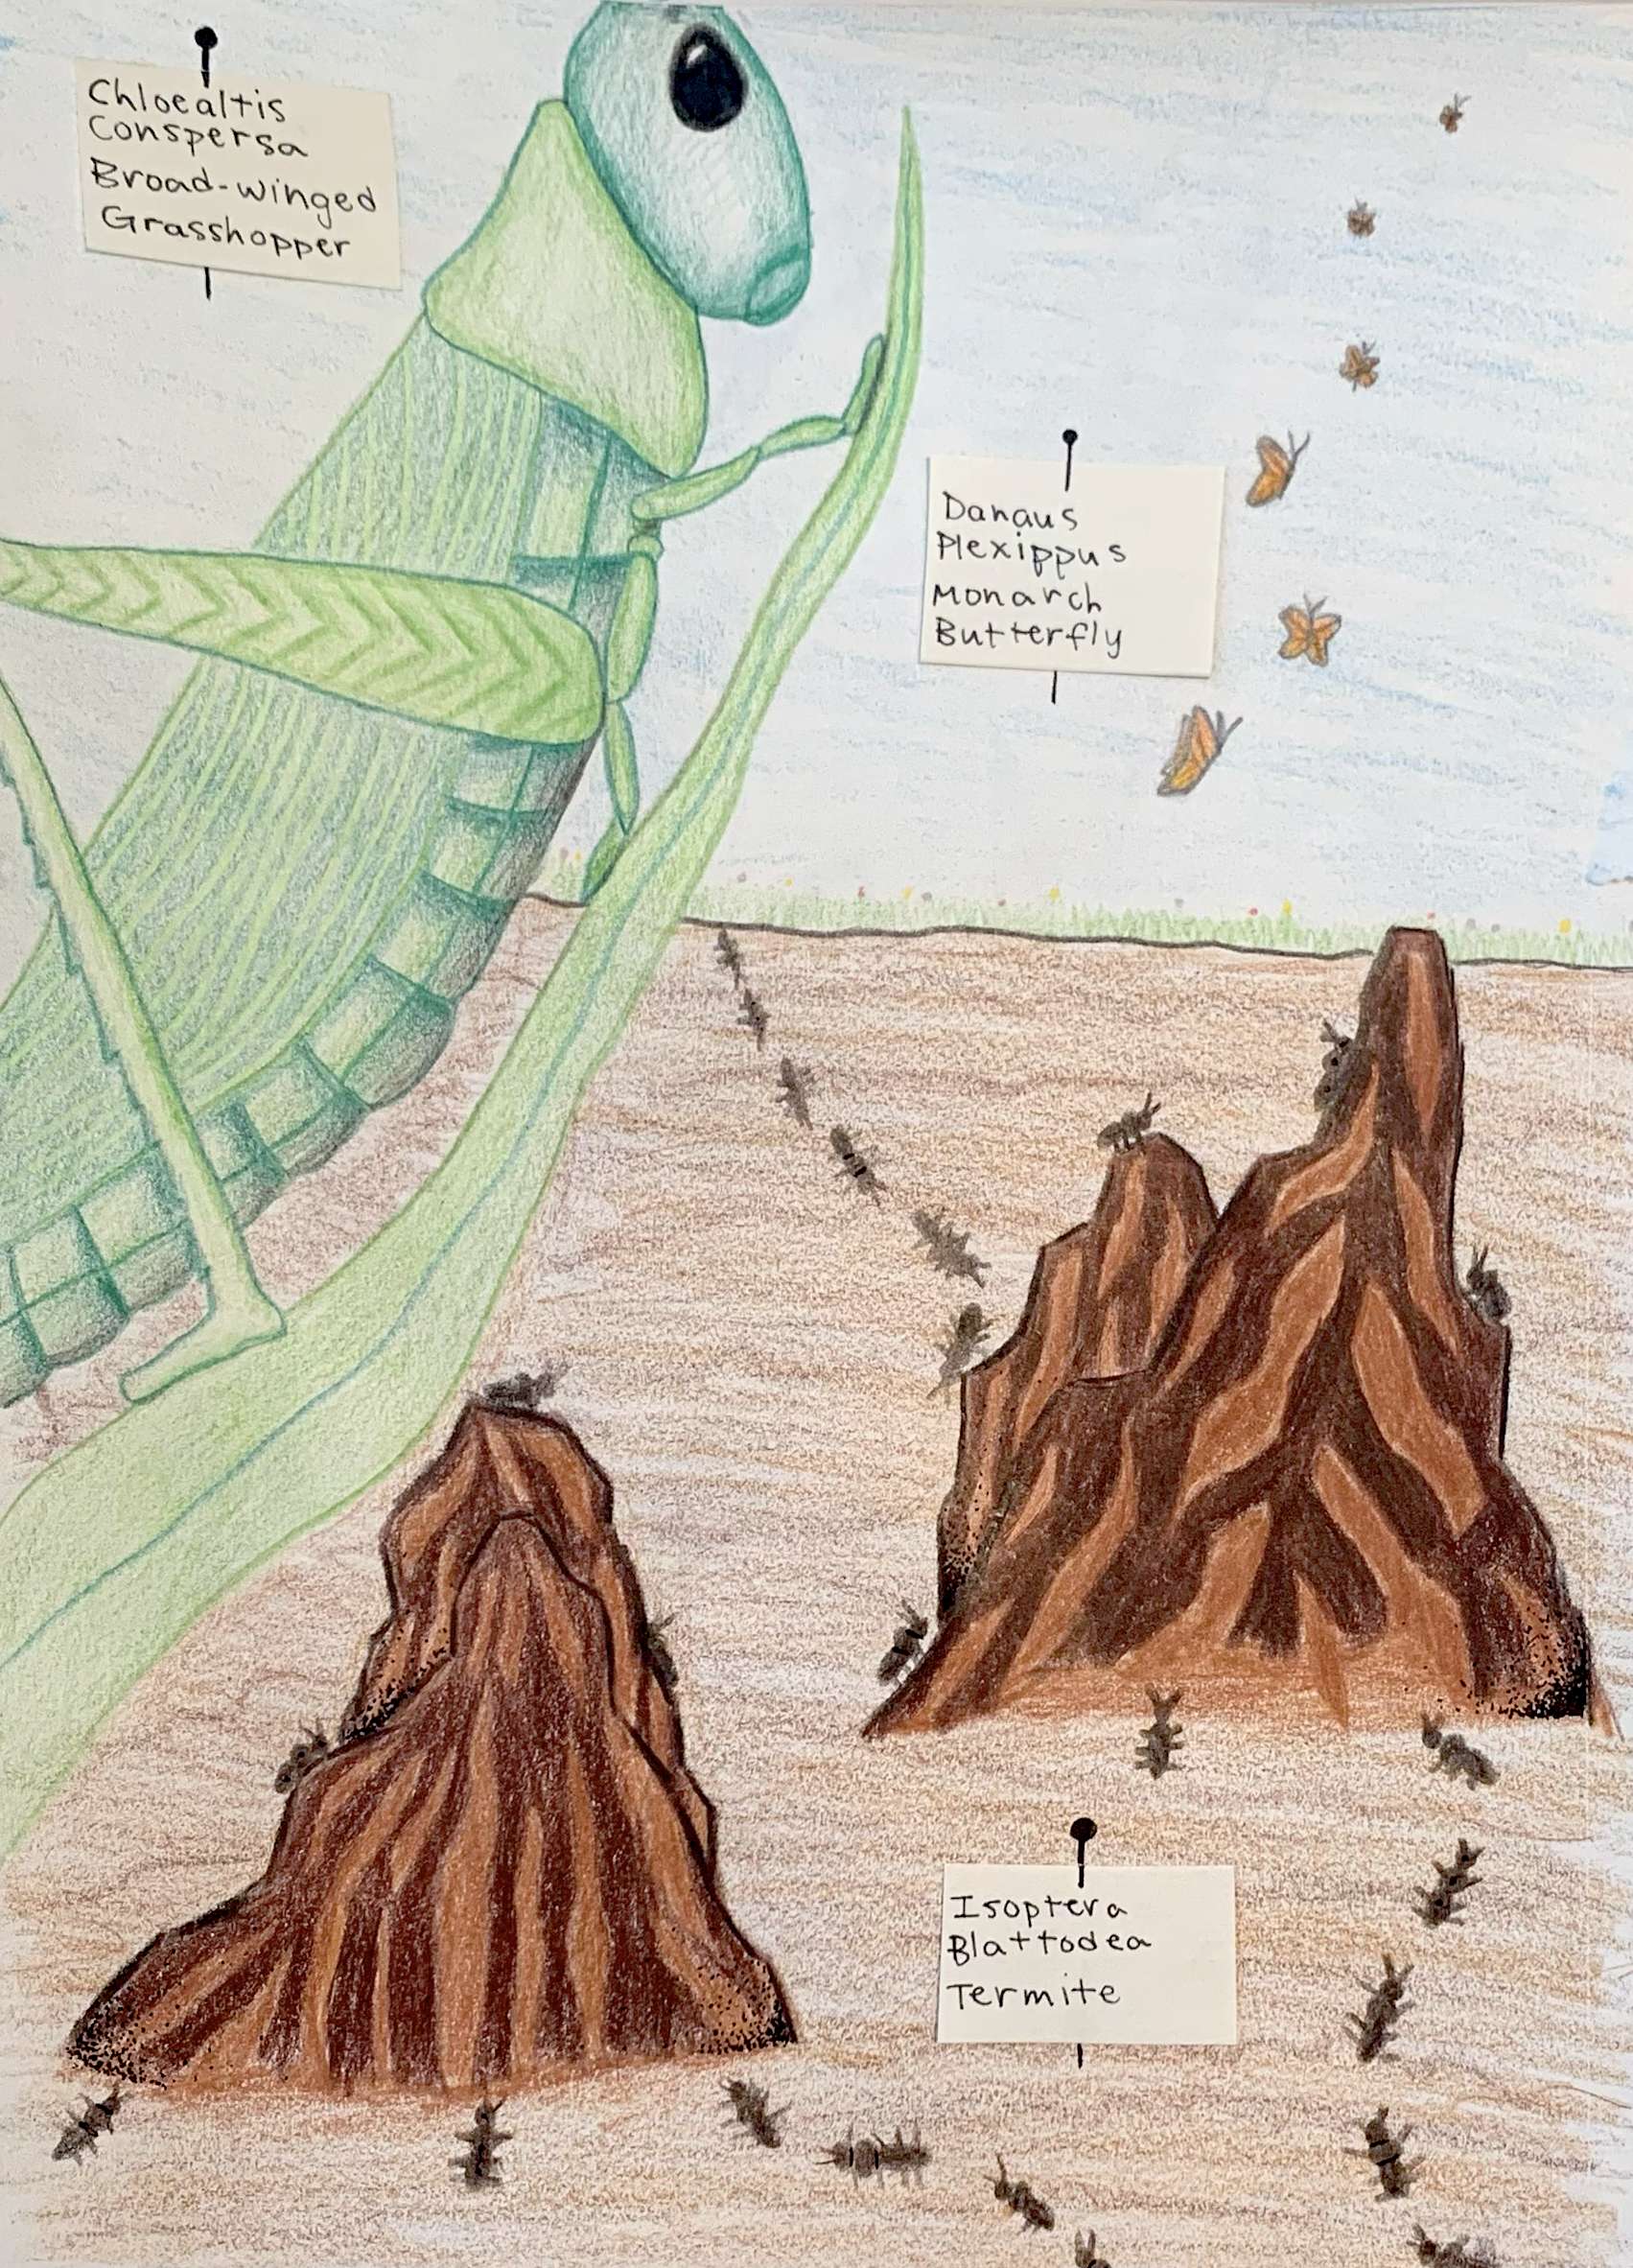 Chloealtis
Conspersa
Broad-winged
Grasshopper
Danaus
Plexippus
Monarch
Butterfly
Isoptera
Blattodea
Termite